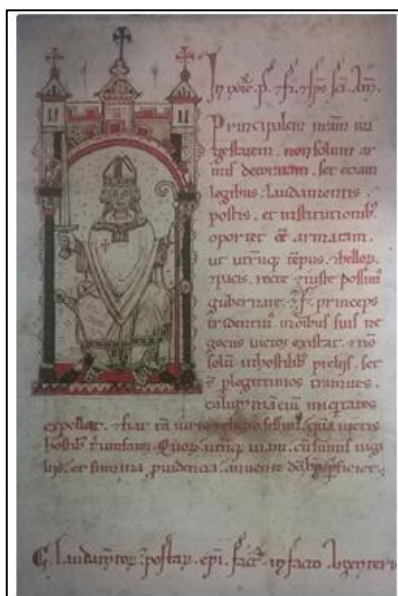 In noīe. p̄. ⁊ fi. ⁊ sp̄s sc̄i. Am̄.
Principalem nr̄am ma
gestatem. non solum ar
mis decoratam. set eciam
legibus. laudamentis.
postis. et institutionib;
oportet eē armatam.
ut utrūq; tēpus. ⁊ bellor̄
⁊ pacis. recte ⁊ iuste possim̄
gubernare. princeps
suis ne
gociis uictor existat. ⁊ nō
solū ī hostilib; preliis. set
⁊ p legittimos tramites.
iniq̄tates
expellat. ⁊ fiat tā iuris religiosissim̄. quā uictis
hostib; t̄umfator. Quor̄ utrūq; uiam. cū sūmis uigi
liis. et summa p̄uidencia. annuente
laudam̄tor̄ postar̄. ep̄i. fact̄. in facto Argenterie